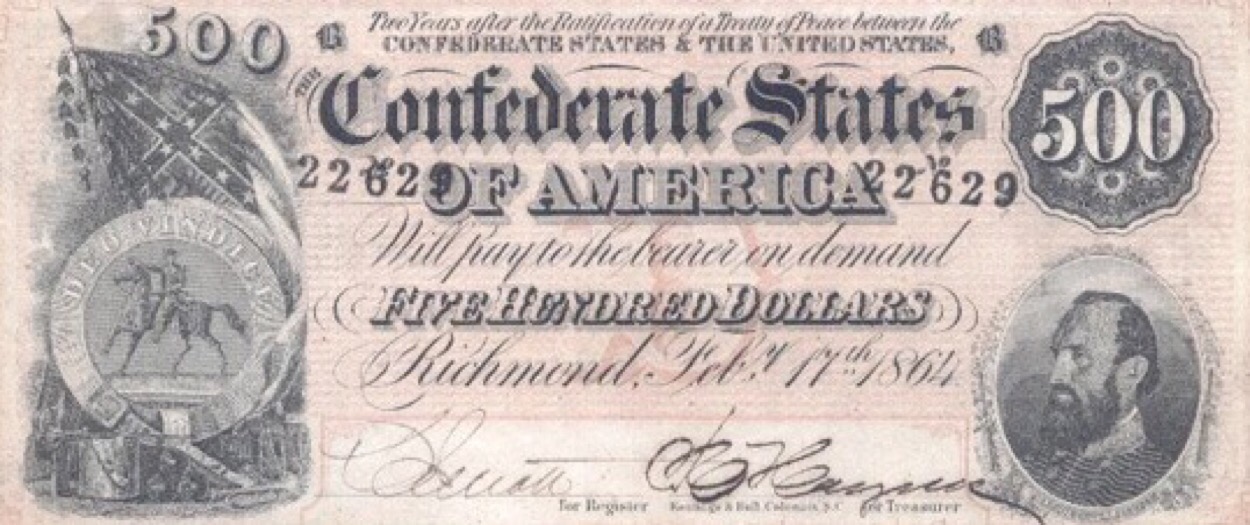 500
Two Years after the Ratification of a Treaty of Peace between the
CONFEDERATE STATES & THE UNITED STATES,
THE
Confederate States
500
22629 OF AMERICA 22629
DEO VINDICE
Will pay to the bearer on demand
FIVE HUNDRED DOLLARS
Richmond, Feby. 17th 1864
for Register
for Treasurer